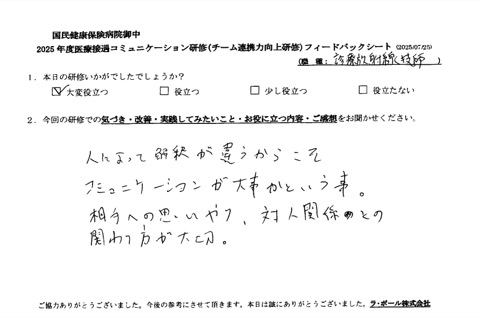 国民健康保険病院御中
2025年度医療接遇コミュニケーション研修(チーム連携力向上研修)フィードバックシート (2025/07/25)
(職 種: 診療放射線技師)
1. 本日の研修いかがでしたでしょうか?
☑大変役立つ □役立つ □少し役立つ □役立たない
2. 今回の研修での気づき・改善・実践してみたいこと・お役に立つ内容・ご感想をお聞かせください。
人によって解釈が違うからこそ
コミュニケーションが大事かという事。
相手への思いやり、対人関係との
関わり方が大切。
ご協力ありがとうございました。今後の参考にさせて頂きます。本日は誠にありがとうございました。ラ・ポール株式会社